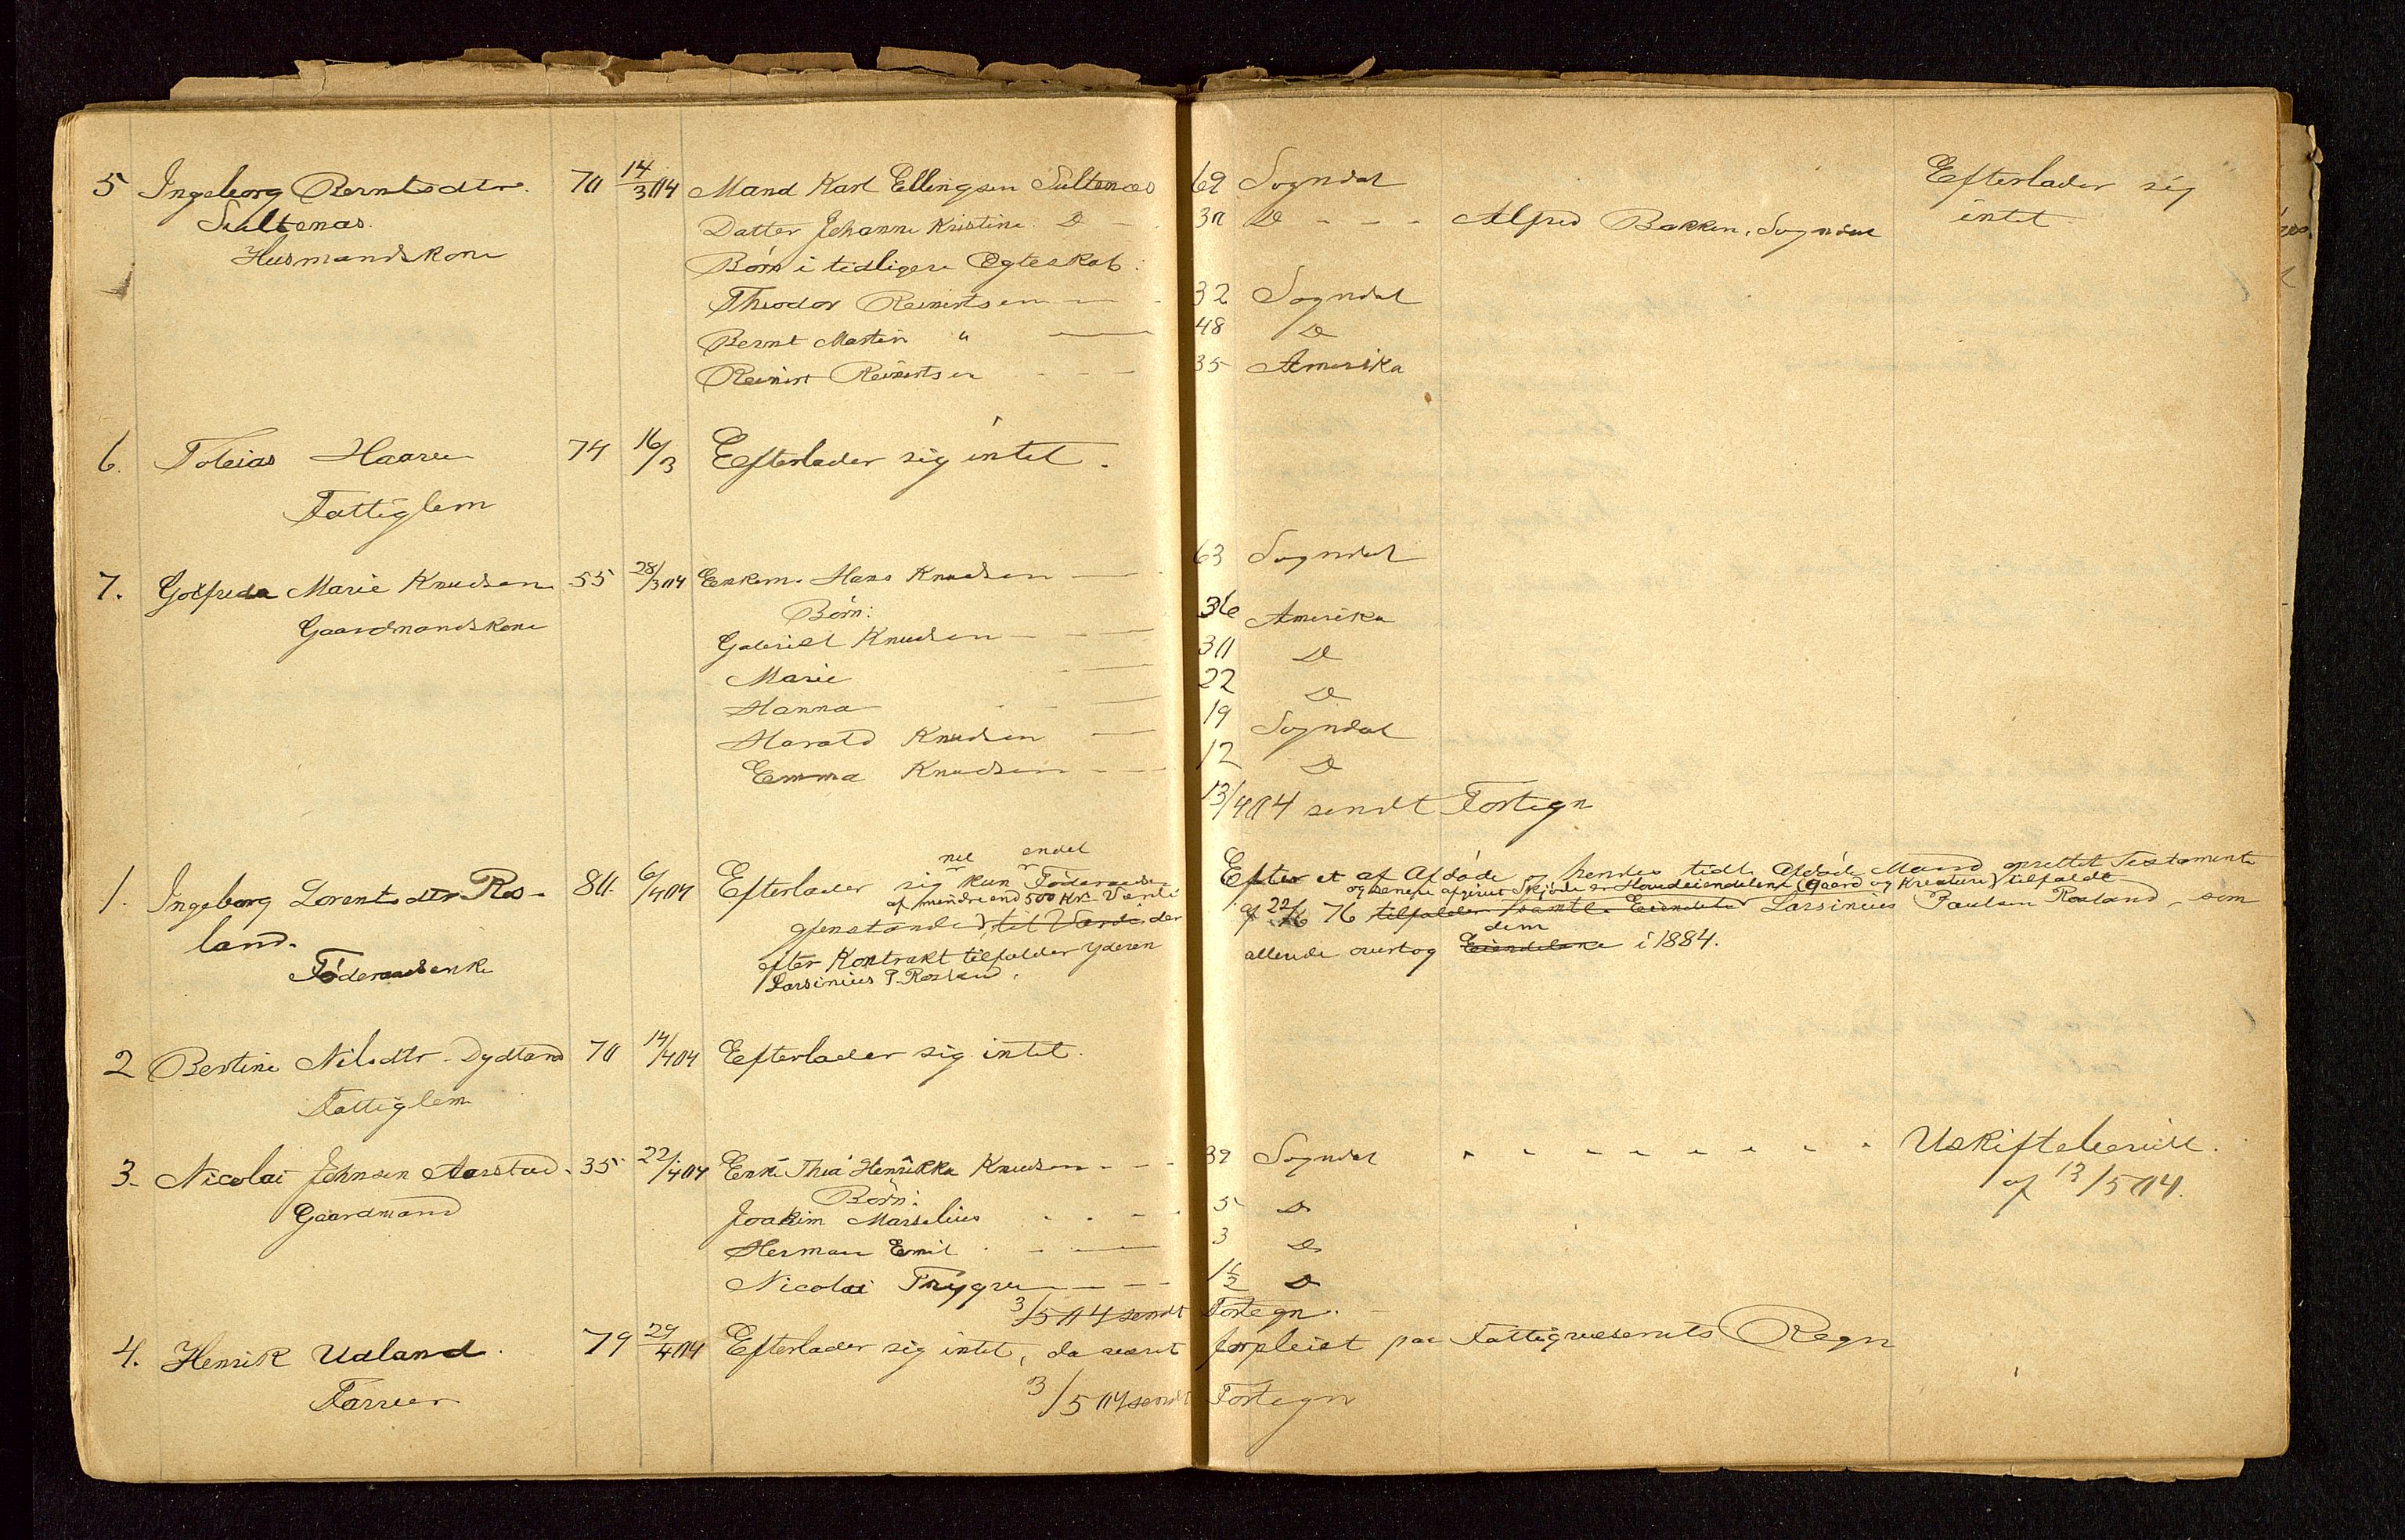 5 Ingeborg Berntsdtr. 70 14/3 04 Mand Karl Ellingsen Sultenæs 69 Sogndal Efterlader sig
Sultenæs. Datter Johanne Kristine. Do - 30 Do - - - Alfred Bakken, Sogndal intet.
Husmandskone Børn i tidligere Ægteskab:
Theodor Reinertsen - - 32 Sogndal
Bernt Martin " - 48 Do
Reinert Reinertsen - - - 35 Amerika
6. Tobias Haave 74 16/3 Efterlader sig intet.
Fattiglem
7. Golfreda Marie Knudsen 55 28/3 04 Enkem. Hans Knudsen - 63 Sogndal
Gaardmandskone Børn:
Gabriel Knudsen - - - 36 Amerika
Marie - - 30 Do
Hanna - - 22 Do
Harald Knudsen - 19 Sogndal
Emma Knudsen - - 12 Do
13/4 04 sendt Fortegn
1. Ingeborg Lorentsdtr Ros- 80. 6/4 04 Efterlader sig kun endel Føderaads
land. af mindre end 500 Kr. Værdi
Føderaadsenke gjenstande til Værdi der
efter Kontrakt tilfalder Yderen
Larsinius P. Rosland.
Efter et af Afdøde og hendes tidl. Afdøde Mand oprettet Testamente
og senere afgivet Skjøde er Hovedeiendelene (Gaard og Kreature) tilfaldt
af 22/6 76 tilfalder samtl. Eiendele Larsinius Paulsen Rosland, som
allerede overtog Eiendelene dem i 1884.
2 Bertine Nilsdtr. Dydland 70 14/4 04 Efterlader sig intet.
Fattiglem
3. Nicolai Johnsen Aarstad. 35 22/4 04 Enke Thea Henrikka Knudsen - - - 39 Sogndal " " " " " " " " Uskiftebevill.
Gaardmand Børn: af 13/5 04.
Joakim Marselius - - - 5 Do
Herman Emil - - - 3 Do
Nicolai Trygve - - - 1 1/2 Do
3/5 04 sendt Fortegn. -
4. Henrik Ualand. 79 29/4 04 Efterlader sig intet, da været forpleiet paa Fattigvæsenets Regn
Farver
3/5 04 sendt Fortegn